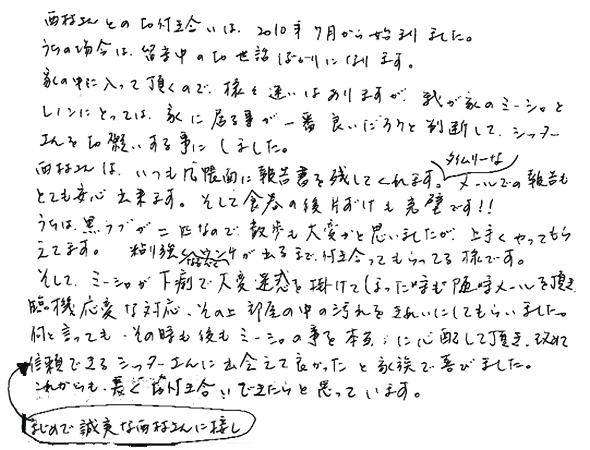 西村さんとのお付き合いは、2010年7月から始まりました。
うちの場合は、留守中のお世話ばかりになります。
家の中に入って頂くので、様々迷いはありますが、我が家のミーシャと
レンにとっては、家に居る事が一番良いだろうと判断して、シッター
さんをお願いする事にしました。
西村さんは、いつも几帳面に報告書を残してくれます。タイムリーなメールでの報告も
とても安心出来ます。そして食器の後片ずけも完璧です!!
うちは、黒ラブが二匹なので、散歩も大変かと思いましたが、上手くやってもら
えてます。粘り強くウンチが出るまで、付き合ってもらってる様です。
そして、ミーシャが下痢で大変迷惑を掛けてしまった時も随時メールを頂き
臨機応変な対応、その上部屋の中の汚れをきれいにしてもらいました。
何と言っても、その時も後もミーシャの事を本当に心配して頂き、改めて
信頼できるシッターさんに出会えて良かったと家族で喜びました。
これからも、長くお付き合いできたらと思っています。
まじめで誠実な西村さんに接し